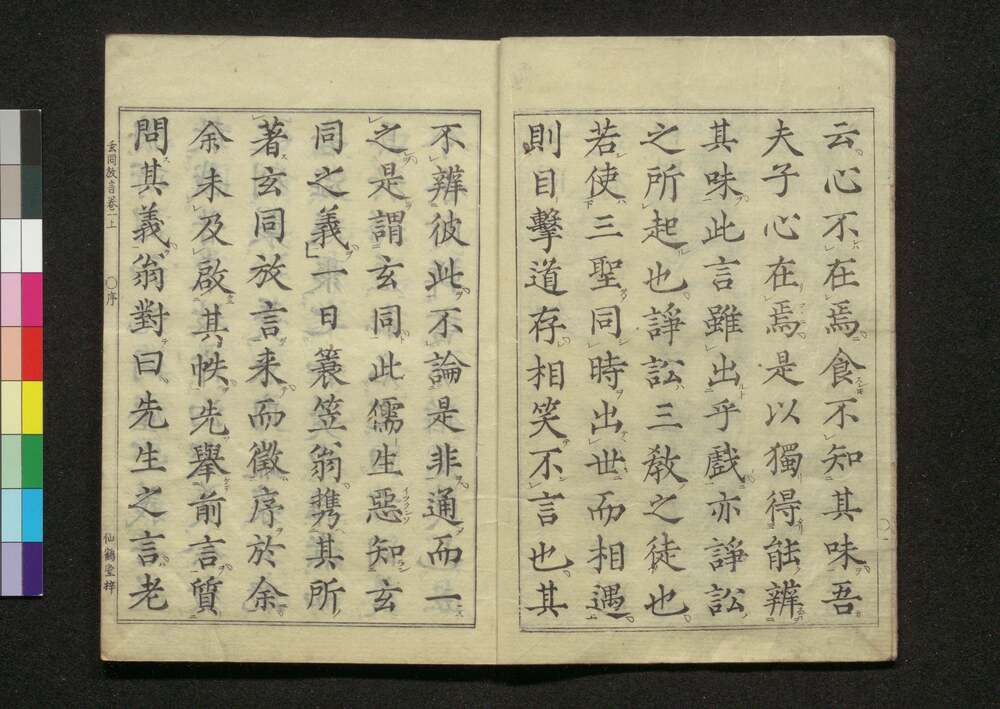 云心不在焉食不知其味吾
夫子心在焉是以獨得能辨
其味此言雖出乎戲亦諍訟
之所起也諍訟三教之徒也
若使三聖同時出世而相遇
則目擊道存相笑不言也其
不辨彼此不論是非通而一
之是謂玄同此儒生惡知玄
同之義一日蓑笠翁携其所
著玄同放言来而徵序於余
余未及啟其帙先舉前言質
問其義翁對曰先生之言老
玄同放言卷一上
〇序
仙鶴堂梓